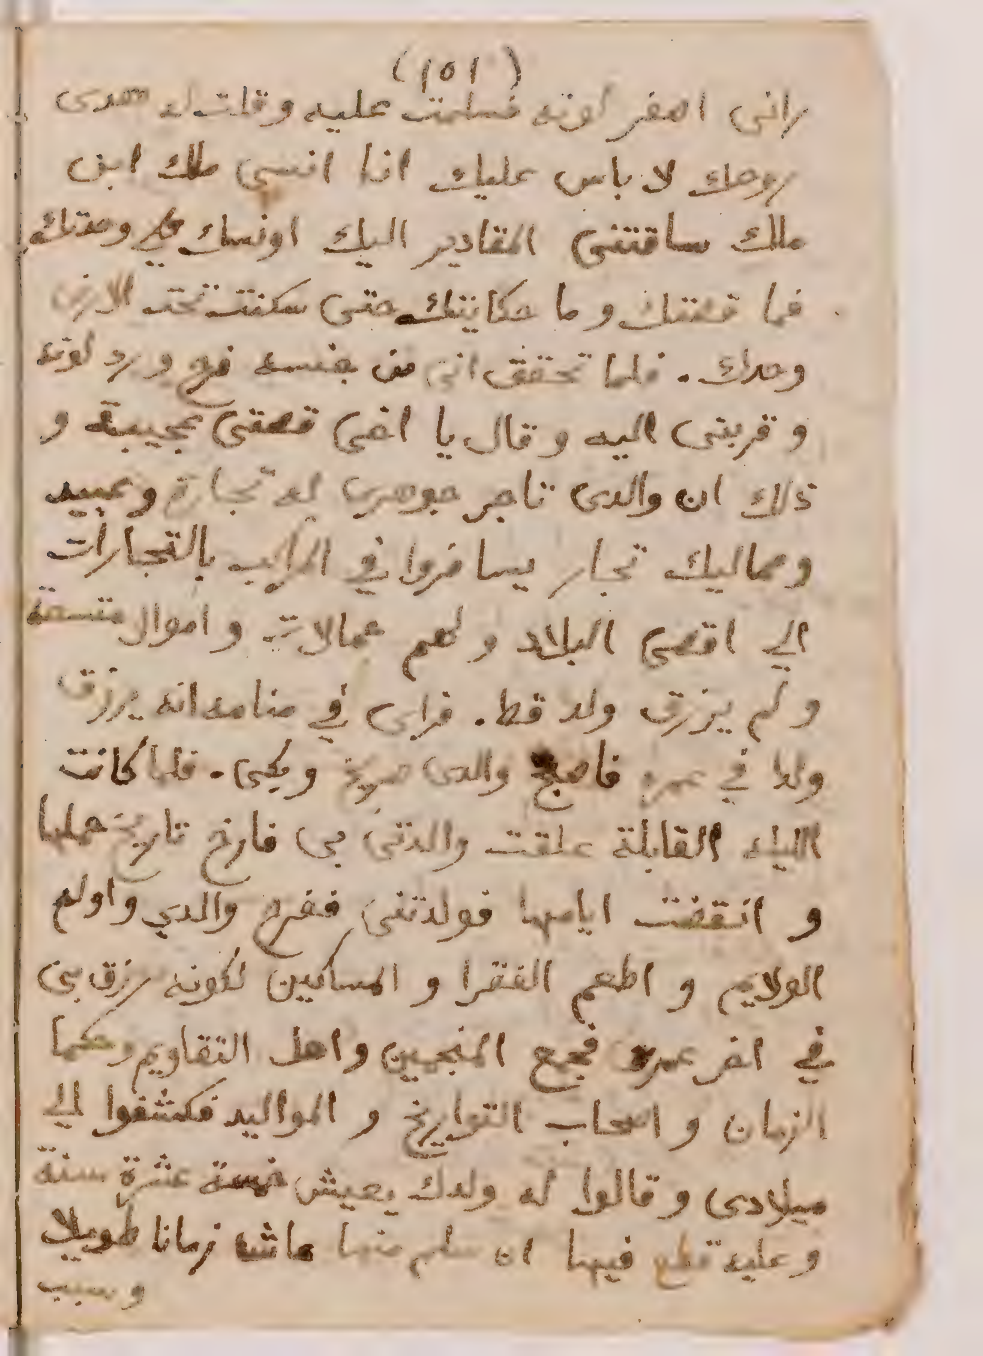 (١٥١)
راني اصفر لونه فسلمت عليه وقلت له هدى
روحك لا باس عليك انا انسي ملك ابن
ملك ساقتني المقادير اليك اونسك في وحدتك
فما قصتك و ما حكايتك حتى سكنت تحت الارض
وحدك. فلما تحقق اني من جنسه فرح و رد لونه
و قربني اليه و قال يا اخي قصتي عجيبة و
ذلك ان والدى تاجر جوهري له تجارة وعبيد
ومماليك تجار يسافروا في المراكب بالتجارات
الي اقصى البلاد و لهم عمالات و اموال متسعة
و لم يرزق ولد قط. فراى في منامه انه يرزق
ولدا في عمره فاصبح والدى صريخ وبكى. فلما كانت
الليله القابلة علقت والدتي بي فارخ تاريخ حملها
و انقضت ايامها فولدتني ففرح والدي واولم
الولايم و اطعم الفقرا و المساكين لكونه رزق بي
في اخر عمره فجمع المنجمين واهل التقاويم وحكما
الزمان و اصحاب التواريخ و المواليد فكشفوا الي
ميلادى و قالوا له ولدك يعيش خمسة عشرة سنة
و عليه قطع فيها ان سلم منها عاش زمانا طويلا
وسبب